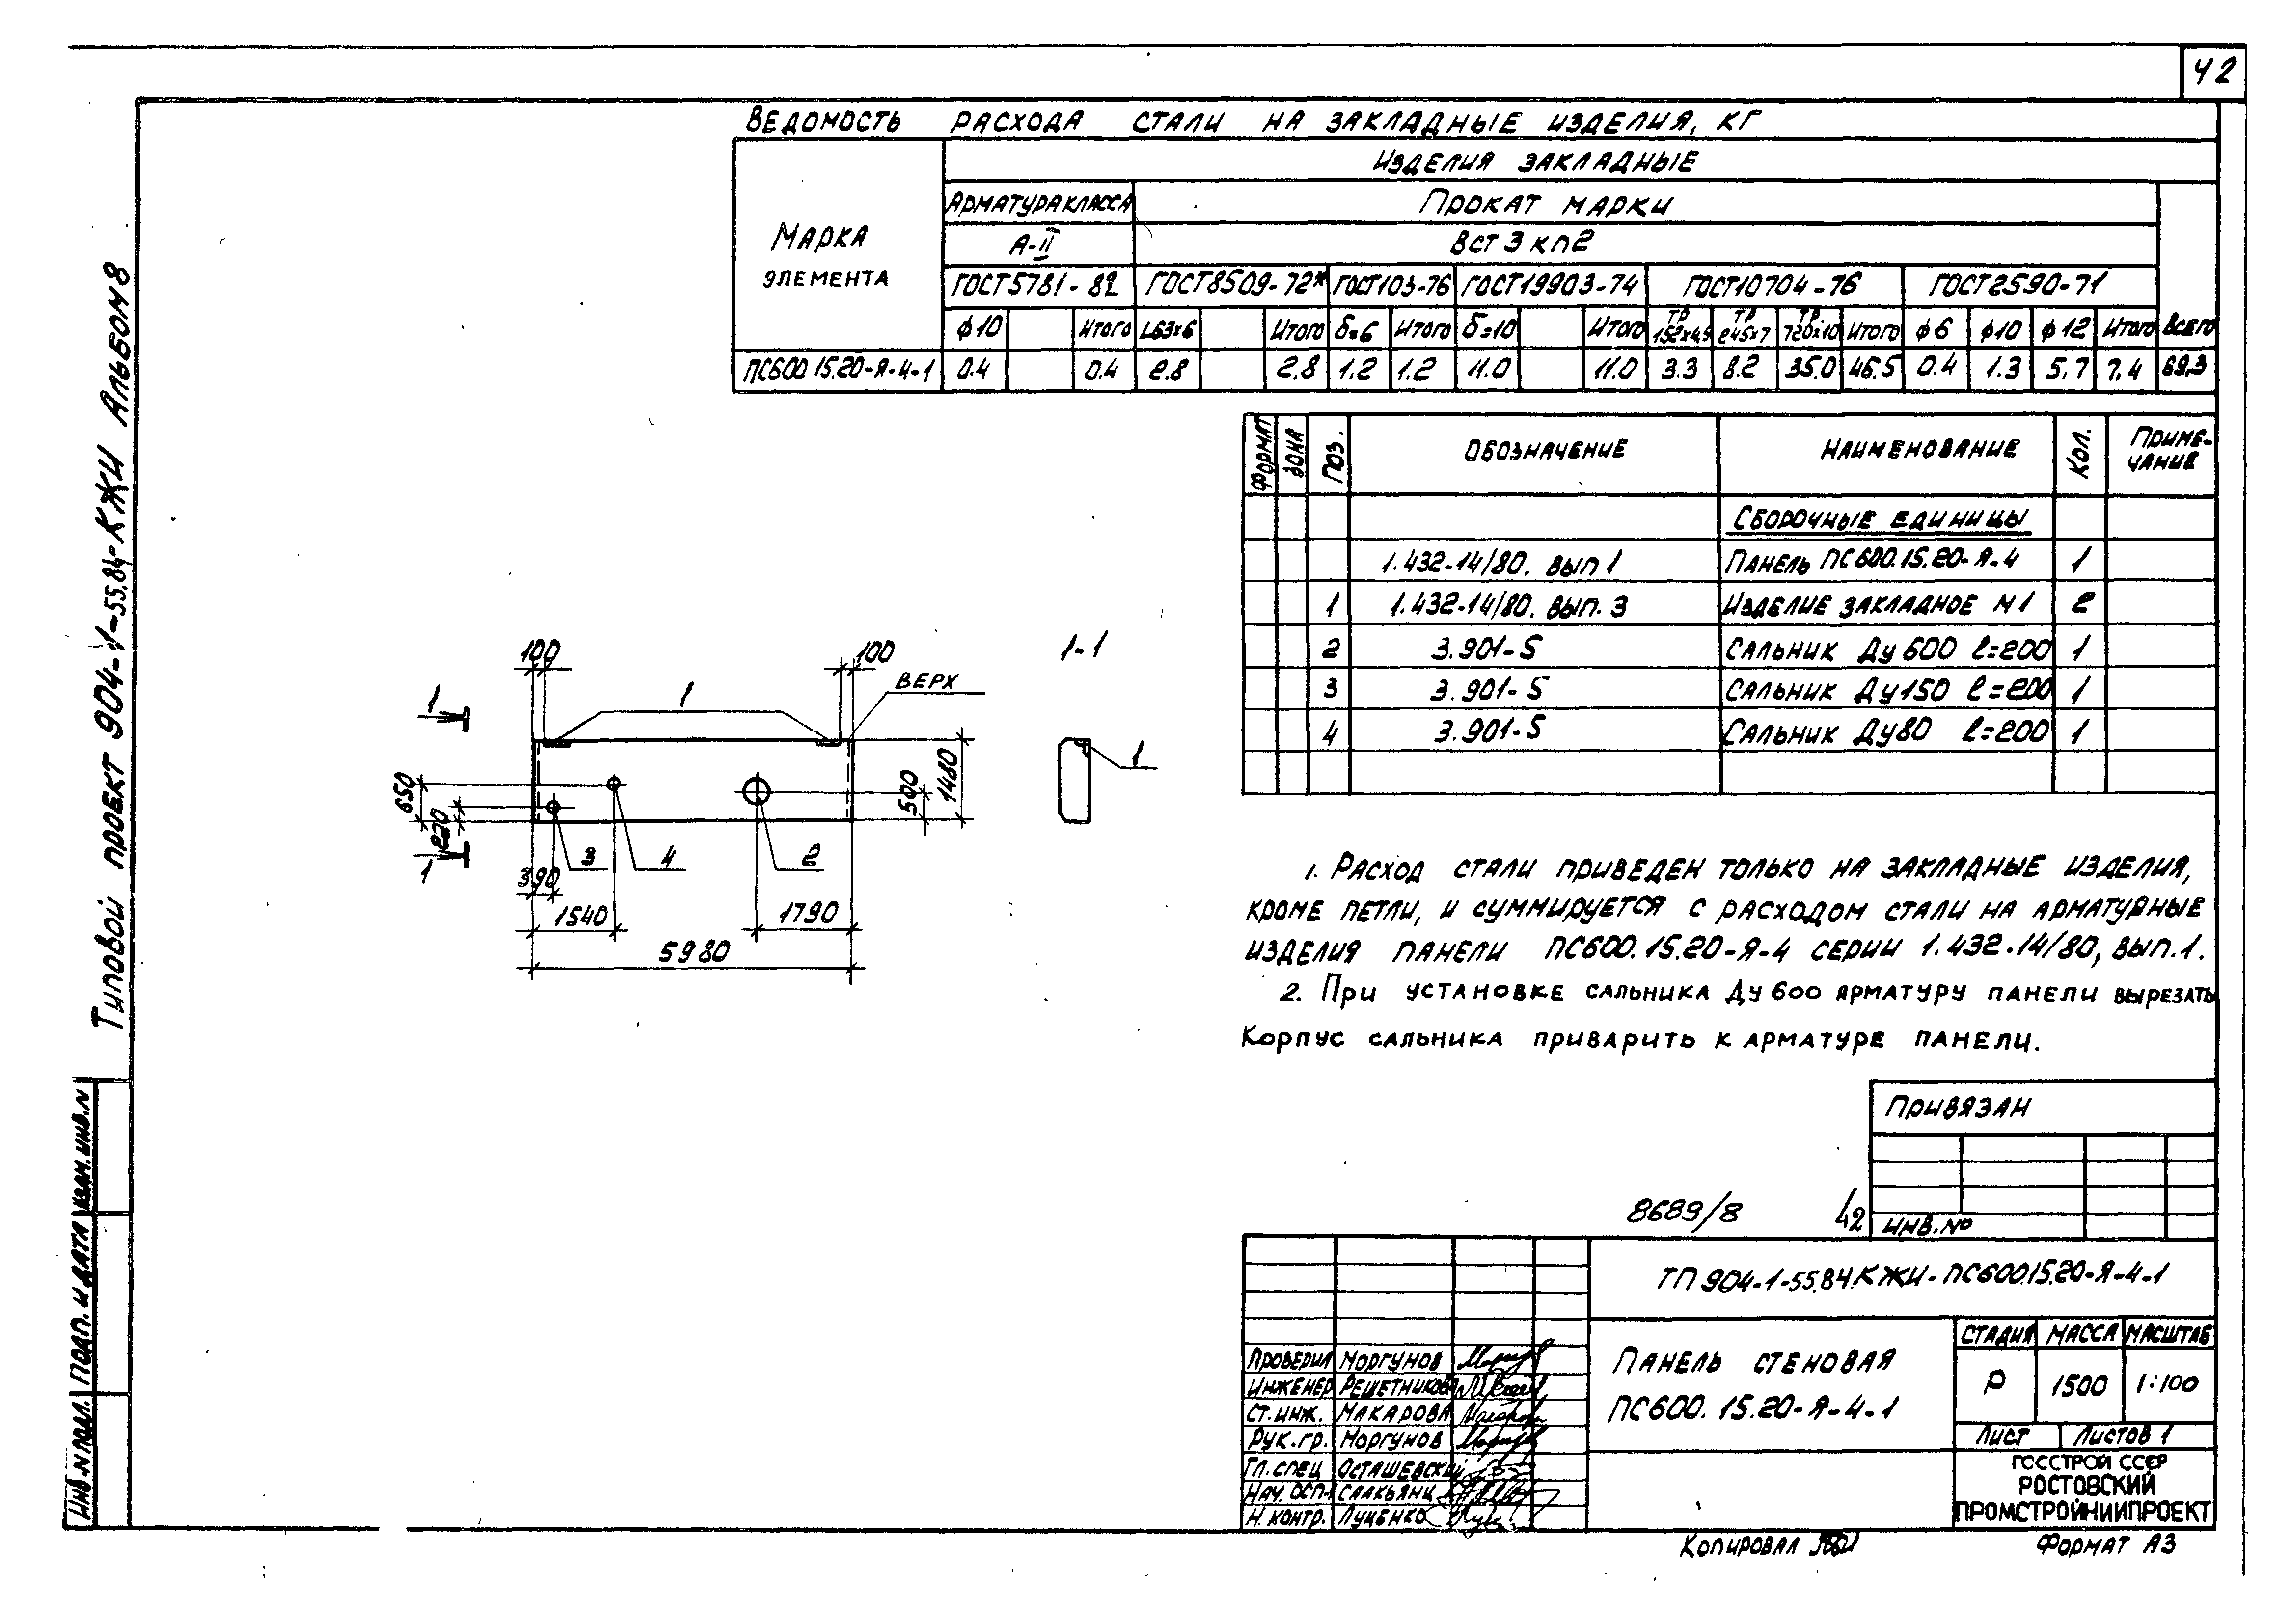 42
Ведомость расхода стали на закладные изделия, кг
Марка элемента
Изделия закладные
Арматура класса
Прокат марки
А-II
Вст3кп2
ГОСТ5781-82 ГОСТ8509-72* ГОСТ103-76 ГОСТ19903-74 ГОСТ10704-76 ГОСТ2590-71
ф10 Итого L63х6 Итого δ=6 Итого δ=10 Итого тр 152х4,5 тр 245х7 тр. 720х10 Итого ф6 ф10 ф12 Итого Всего
ПС600 15.20-Я-4-1 0.4 0.4 2.8 2.8 1.2 1.2 11.0 11.0 3.3 8.2 35.0 46.5 0.4 1.3 5.7 7.4 69.3
Формат Зона Поз. Обозначение Наименование Кол. Приме-
чание
Сборочные единицы
1.432-14/80. вып 1 Панель ПС600.15.20-Я-4 1
1 1.432-14/80. вып. 3 Изделие закладное М1 2
2 3.901-5 Сальник Ду 600 ℓ=200 1
3 3.901-5 Сальник Ду150 ℓ=200 1
4 3.901-5 Сальник Ду80 ℓ=200 1
100
100
1-1
1
1
Верх
650
220
500
1480
1
1
3
4
2
390
1540
1790
5980
1. Расход стали приведен только на закладные изделия,
кроме петли, и суммируется с расходом стали на арматурные
изделия панели ПС600.15.20-Я-4 серии 1.432-14/80, вып.1.
2. При установке сальника Ду 600 арматуру панели вырезать
Корпус сальника приварить к арматуре панели.
Привязан
Инв.№
8689/8
42
ТП 904-1-55.84.КЖИ-ПС600.15.20-Я-4-1
Панель стеновая
ПС600.15.20-Я-4-1
Стадия Масса Масштаб
Р 1500 1:100
Лист Листов 1
Госстрой СССР
РОСТОВСКИЙ
ПРОМСТРОЙНИИПРОЕКТ
Проверил Моргунов
Инженер Решетникова
Ст.инж. Макарова
Рук.гр. Моргунов
Гл.спец Осташевский
Нач. ОСП-1 Саакьянц
Н.контр. Луценко
Копировал
Формат А3
Типовой проект 904-1-55.84-КЖИ Альбом 8
Инв.№ подл. Подп. и дата Взам.инв.№